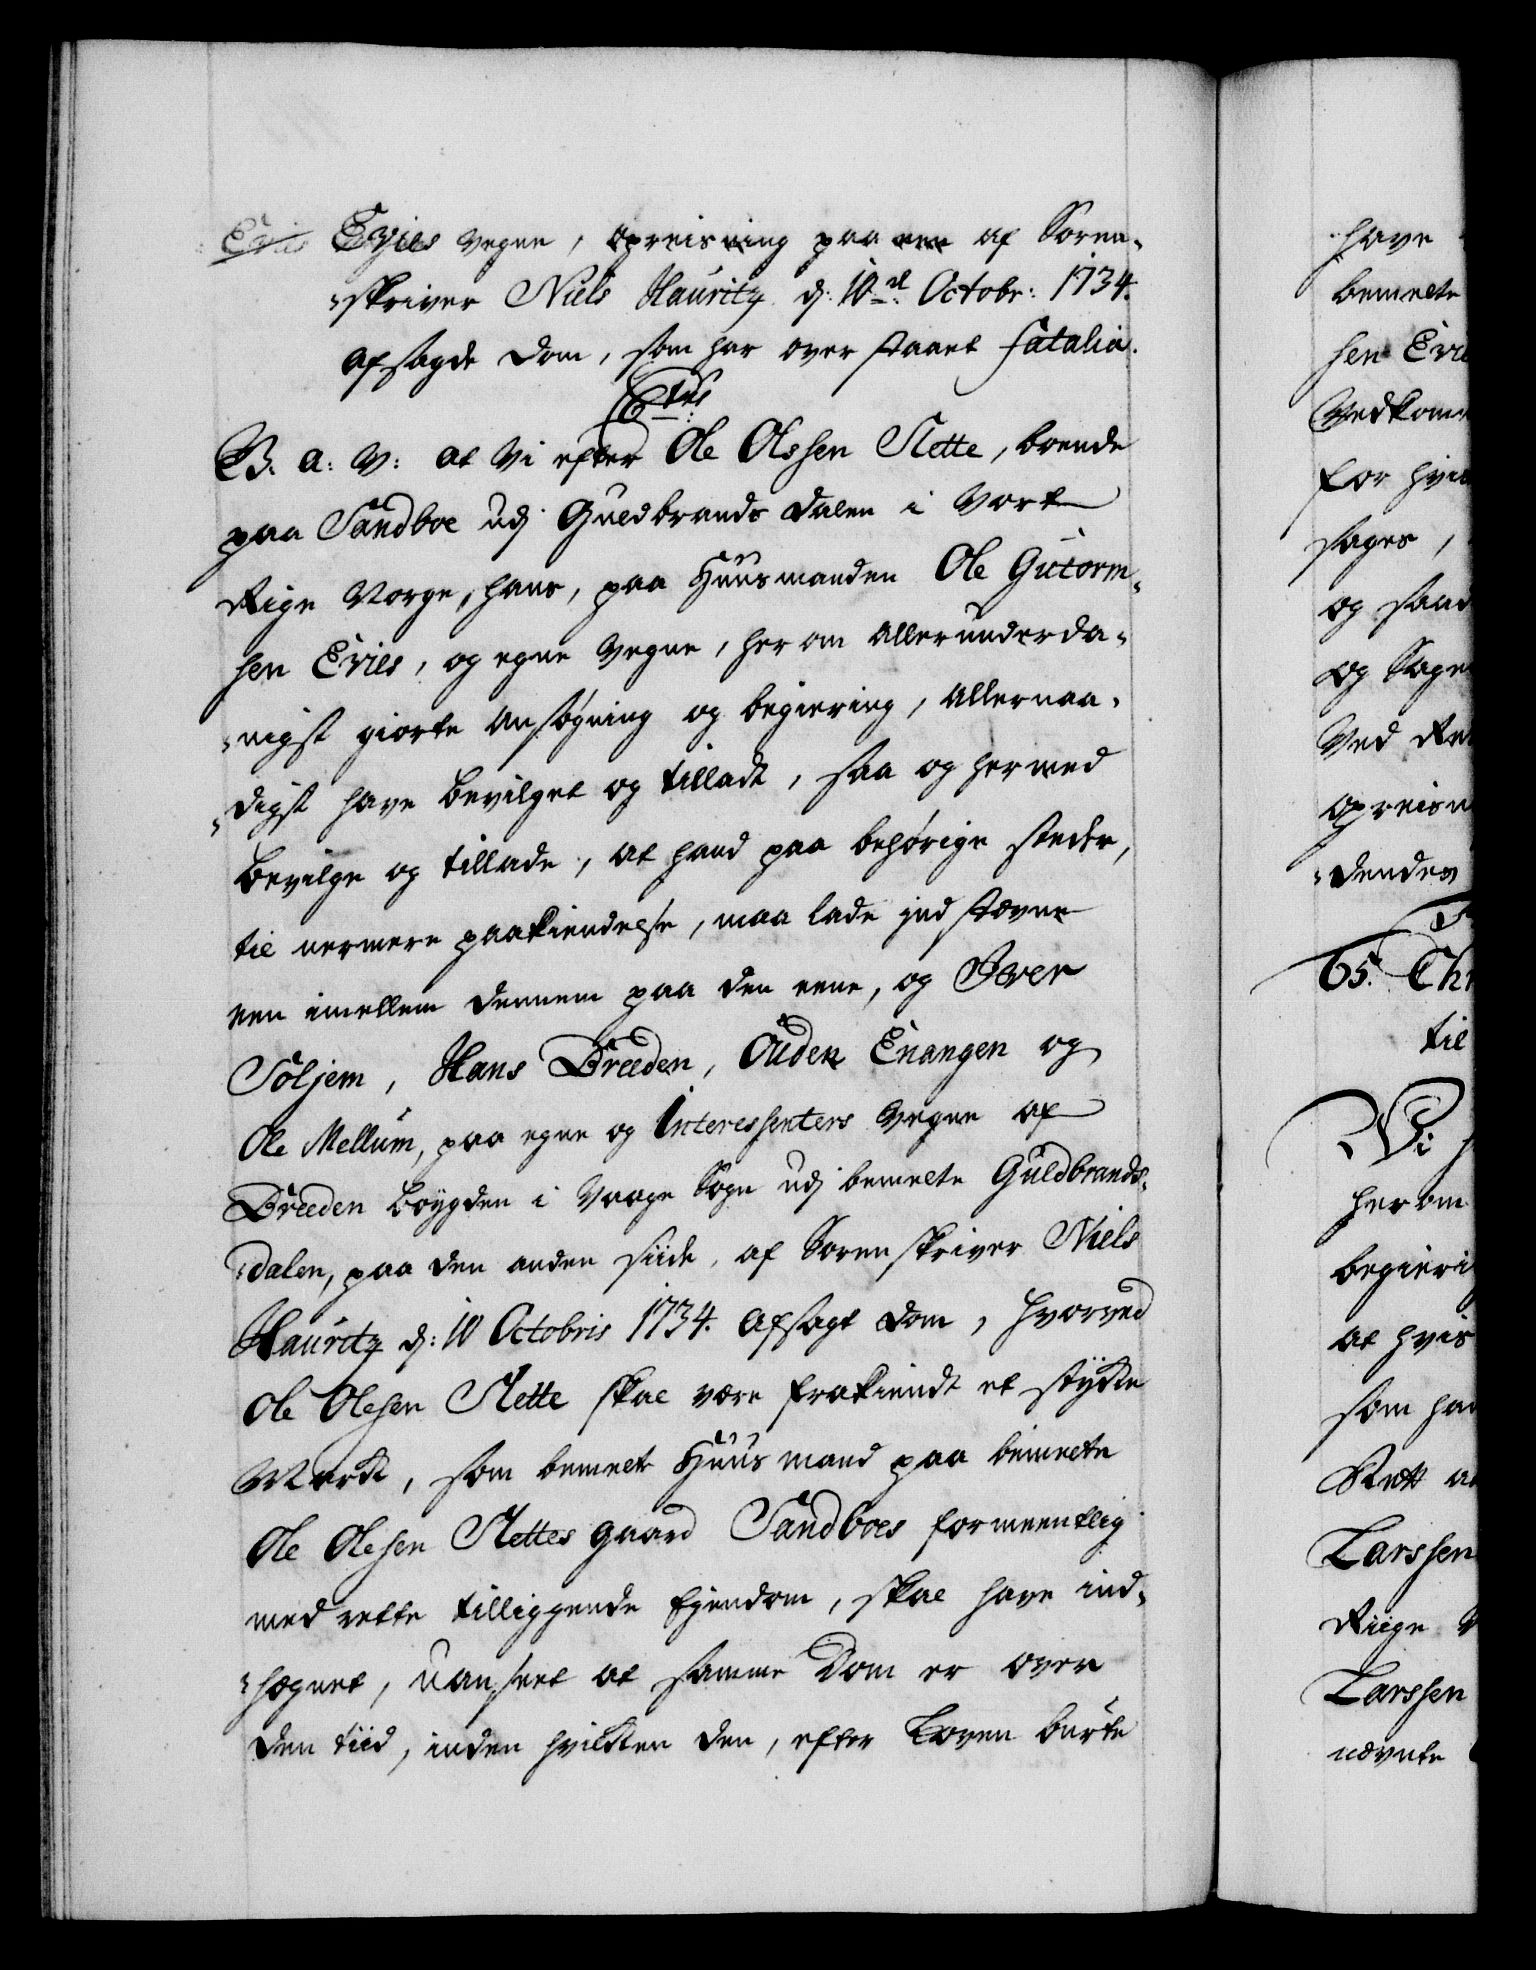 Evies Vegne, opreisning paa een af Soren-
skriver Niels Hauritz d: 10de Octobr: 1734.
afsagde Dom, som har overstaaet fatalia.
C6tus
B. a: V: at Vi efter Ole Olssen Slette, boende
paa Sandboe udj Guldbrands Dalen i Vort
Rige Norge, hans, paa Huusmanden Ole Gutorm-
sen Evies, og egne Vegne, herom allerunderda-
nigst giorte ansøgning og begiering, allernaa-
digst have bevilget og tilladt, saa og hermed
bevilge og tillade, at hand paa behørige steder,
til nermere paakiendelse, maa lade indstævne
een imellem dennem paa den eene, og Iver
Soljem, Hans Breeden, Ouden Enangen og
Ole Mellum, paa egne og Interessenters Vegne af
Breeden Boygden i Vaage Sogn udj bemelte Guldbrands-
dalen, paa den anden siide, af Sorenskriver Niels
Hauritz d: 10 Octobris 1734. afsagt Dom, hvorved
Ole Olesen Slette skal være frakiendt et stykke
Mark, som bemelte Huusmand paa bemelte
Ole Olesen Slettes gaard Sandboes formeentlig
med rette tilliggende Ejendom, skal have ind-
hegnet, uanseet at samme Dom er over
den tiid, inden hvilken den, efter Loven burte
have
bemelte
sen Evie
for
sages,
og
og Sage
Ved
opreis
dendes
65. Chr
til
Vi
herom
begieri
at hvis
som han
Rett
Larssen
Riige
Larssen
nævnte